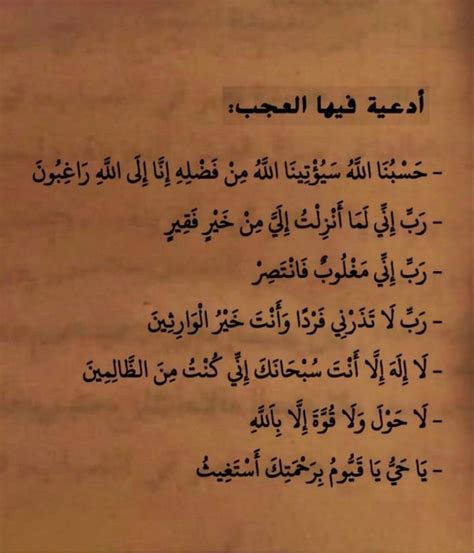 أدعية فيها العجب:
- حَسْبُنَا اللَّهُ سَيُؤْتِينَا اللَّهُ مِنْ فَضْلِهِ إِنَّا إِلَى اللَّهِ رَاغِبُونَ
- رَبِّ إِنِّي لَمَا أَنْزِلْتُ إِلَيَّ مِنْ خَيْرٍ فَقِيرٍ
- رَبِّ إِنِّي مَغْلُوبٌ فَانْتَصِرْ
- رَبِّ لَا تَذَرْنِي فَرْدًا وَأَنْتَ خَيْرُ الْوَارِثِينَ
- لَا إِلَهَ إِلَّا أَنْتَ سُبْحَانَكَ إِنِّي كُنْتُ مِنَ الظَّالِمِينَ
- لَا حَوْلَ وَلَا قُوَّةَ إِلَّا بِاَللَّهِ
- يَا حَيُّ يَا قَيُّومُ بِرَحْمَتِكَ أَسْتَغِيثُ